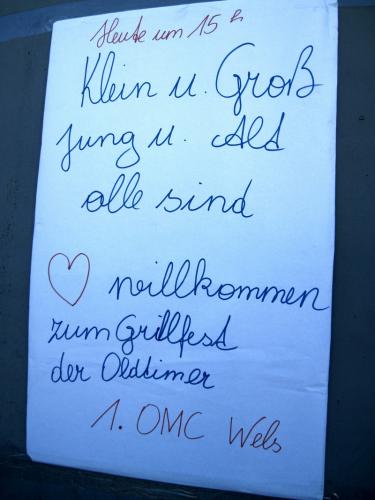 Heute um 15 h
Klein u. Groß
jung u. Alt
alle sind
willkommen
zum Grillfest
der Oldtimer
1. OMC Wels